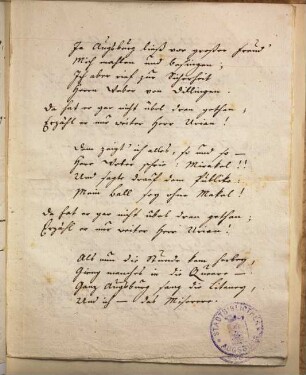 In Augsburg ließ vor großer Freud'
Mich mahlen und besingen;
Ich aber rief zur Sicherheit
Herrn Weber von Dillingen.
Da hat er gar nicht übel dran gethan;
Erzähl er nur weiter Herr Urian!
Dem zeigt' ich alles, so und so —
Herr Weber schrie: Mirakel!!
Und sagte drauf dem Publiko:
Mein Ball sey ohne Makel!
Da hat er gar nicht übel dran gethan;
Erzähl er nur weiter Herr Urian!
Als nun die Stunde kam herbey,
Gieng manches in die Quere —
Ganz Augsburg sang die Litaney,
Und ich — das Miserere.
STADTBIBLIOTHEK
AUGSBURG